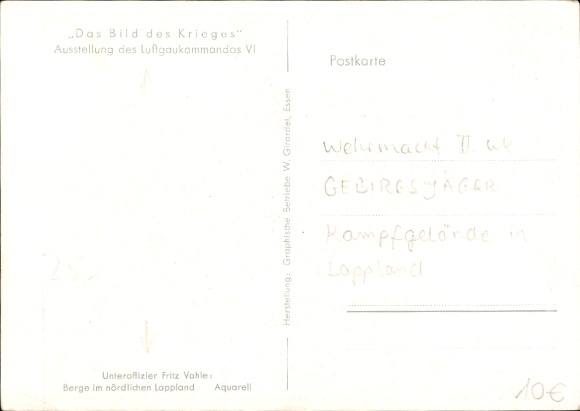 „Das Bild des Krieges"
Ausstellung des Luftgaukommandos VI
Unteroffizier Fritz Vahle:
Berge im nördlichen Lappland Aquarell
Herstellung: Graphische Betriebe W. Girardet, Essen
Postkarte
Wehrmacht II. WK
GEBIRGSJÄGER
Kampfgelände in
Lappland
10€